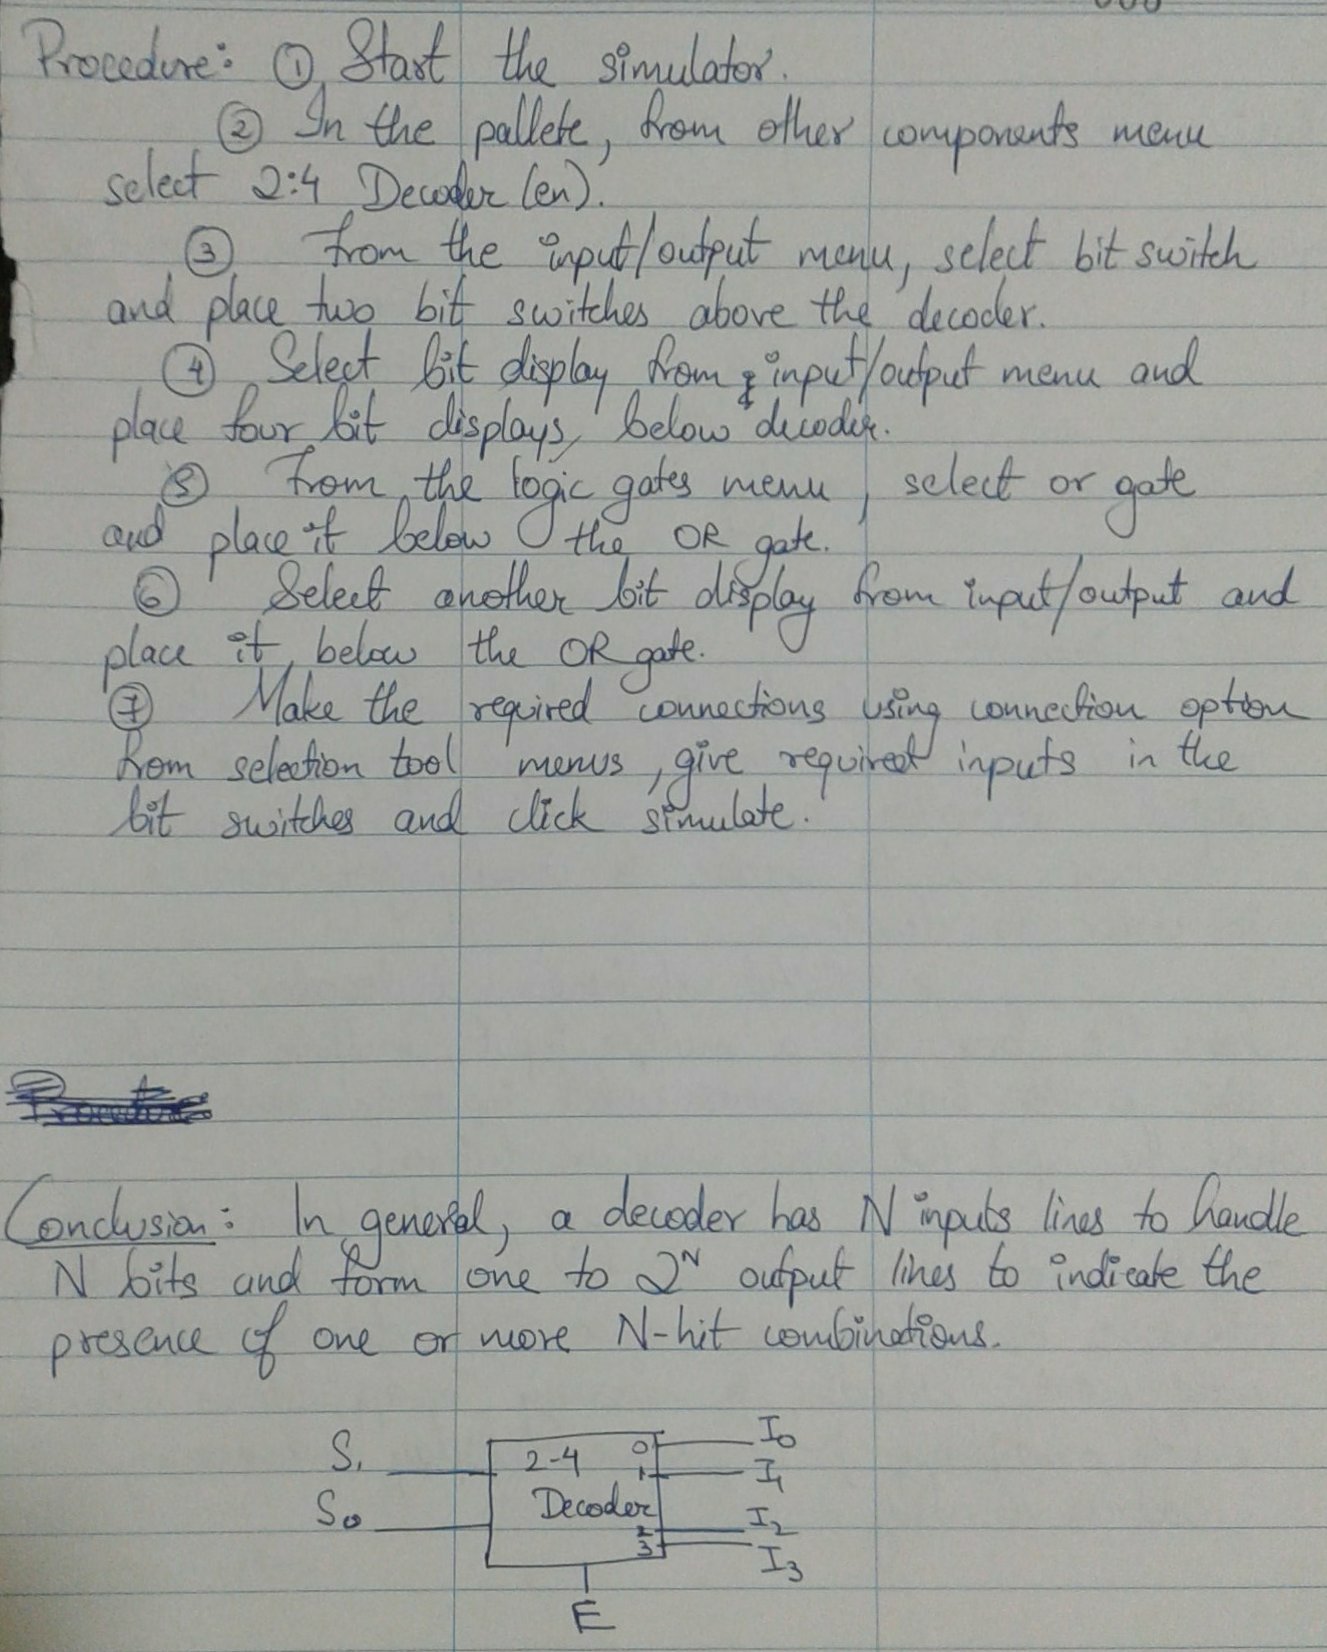 Procedure: ① Start the simulator.
② In the pallete, from other components menu
select 2:4 Decoder (en).
③ from the input/output menu, select bit switch
and place two bit switches above the decoder.
④ Select bit display from input/output menu and
place four bit displays, below decoder.
⑤ From the logic gates menu, select or gate
and place it below the OR gate.
⑥ Select another bit display from input/output and
place it, below the OR gate.
⑦ Make the required connections using connection option
from selection tool menus, give required inputs in the
bit switches and click simulate.
Conclusion: In general, a decoder has N inputs lines to handle
N bits and form one to 2ᴺ output lines to indicate the
presence of one or more N-hit combinations.
S₁ 2-4 0 I₀
1 I₁
S₀ Decoder 2 I₂
3 I₃
E